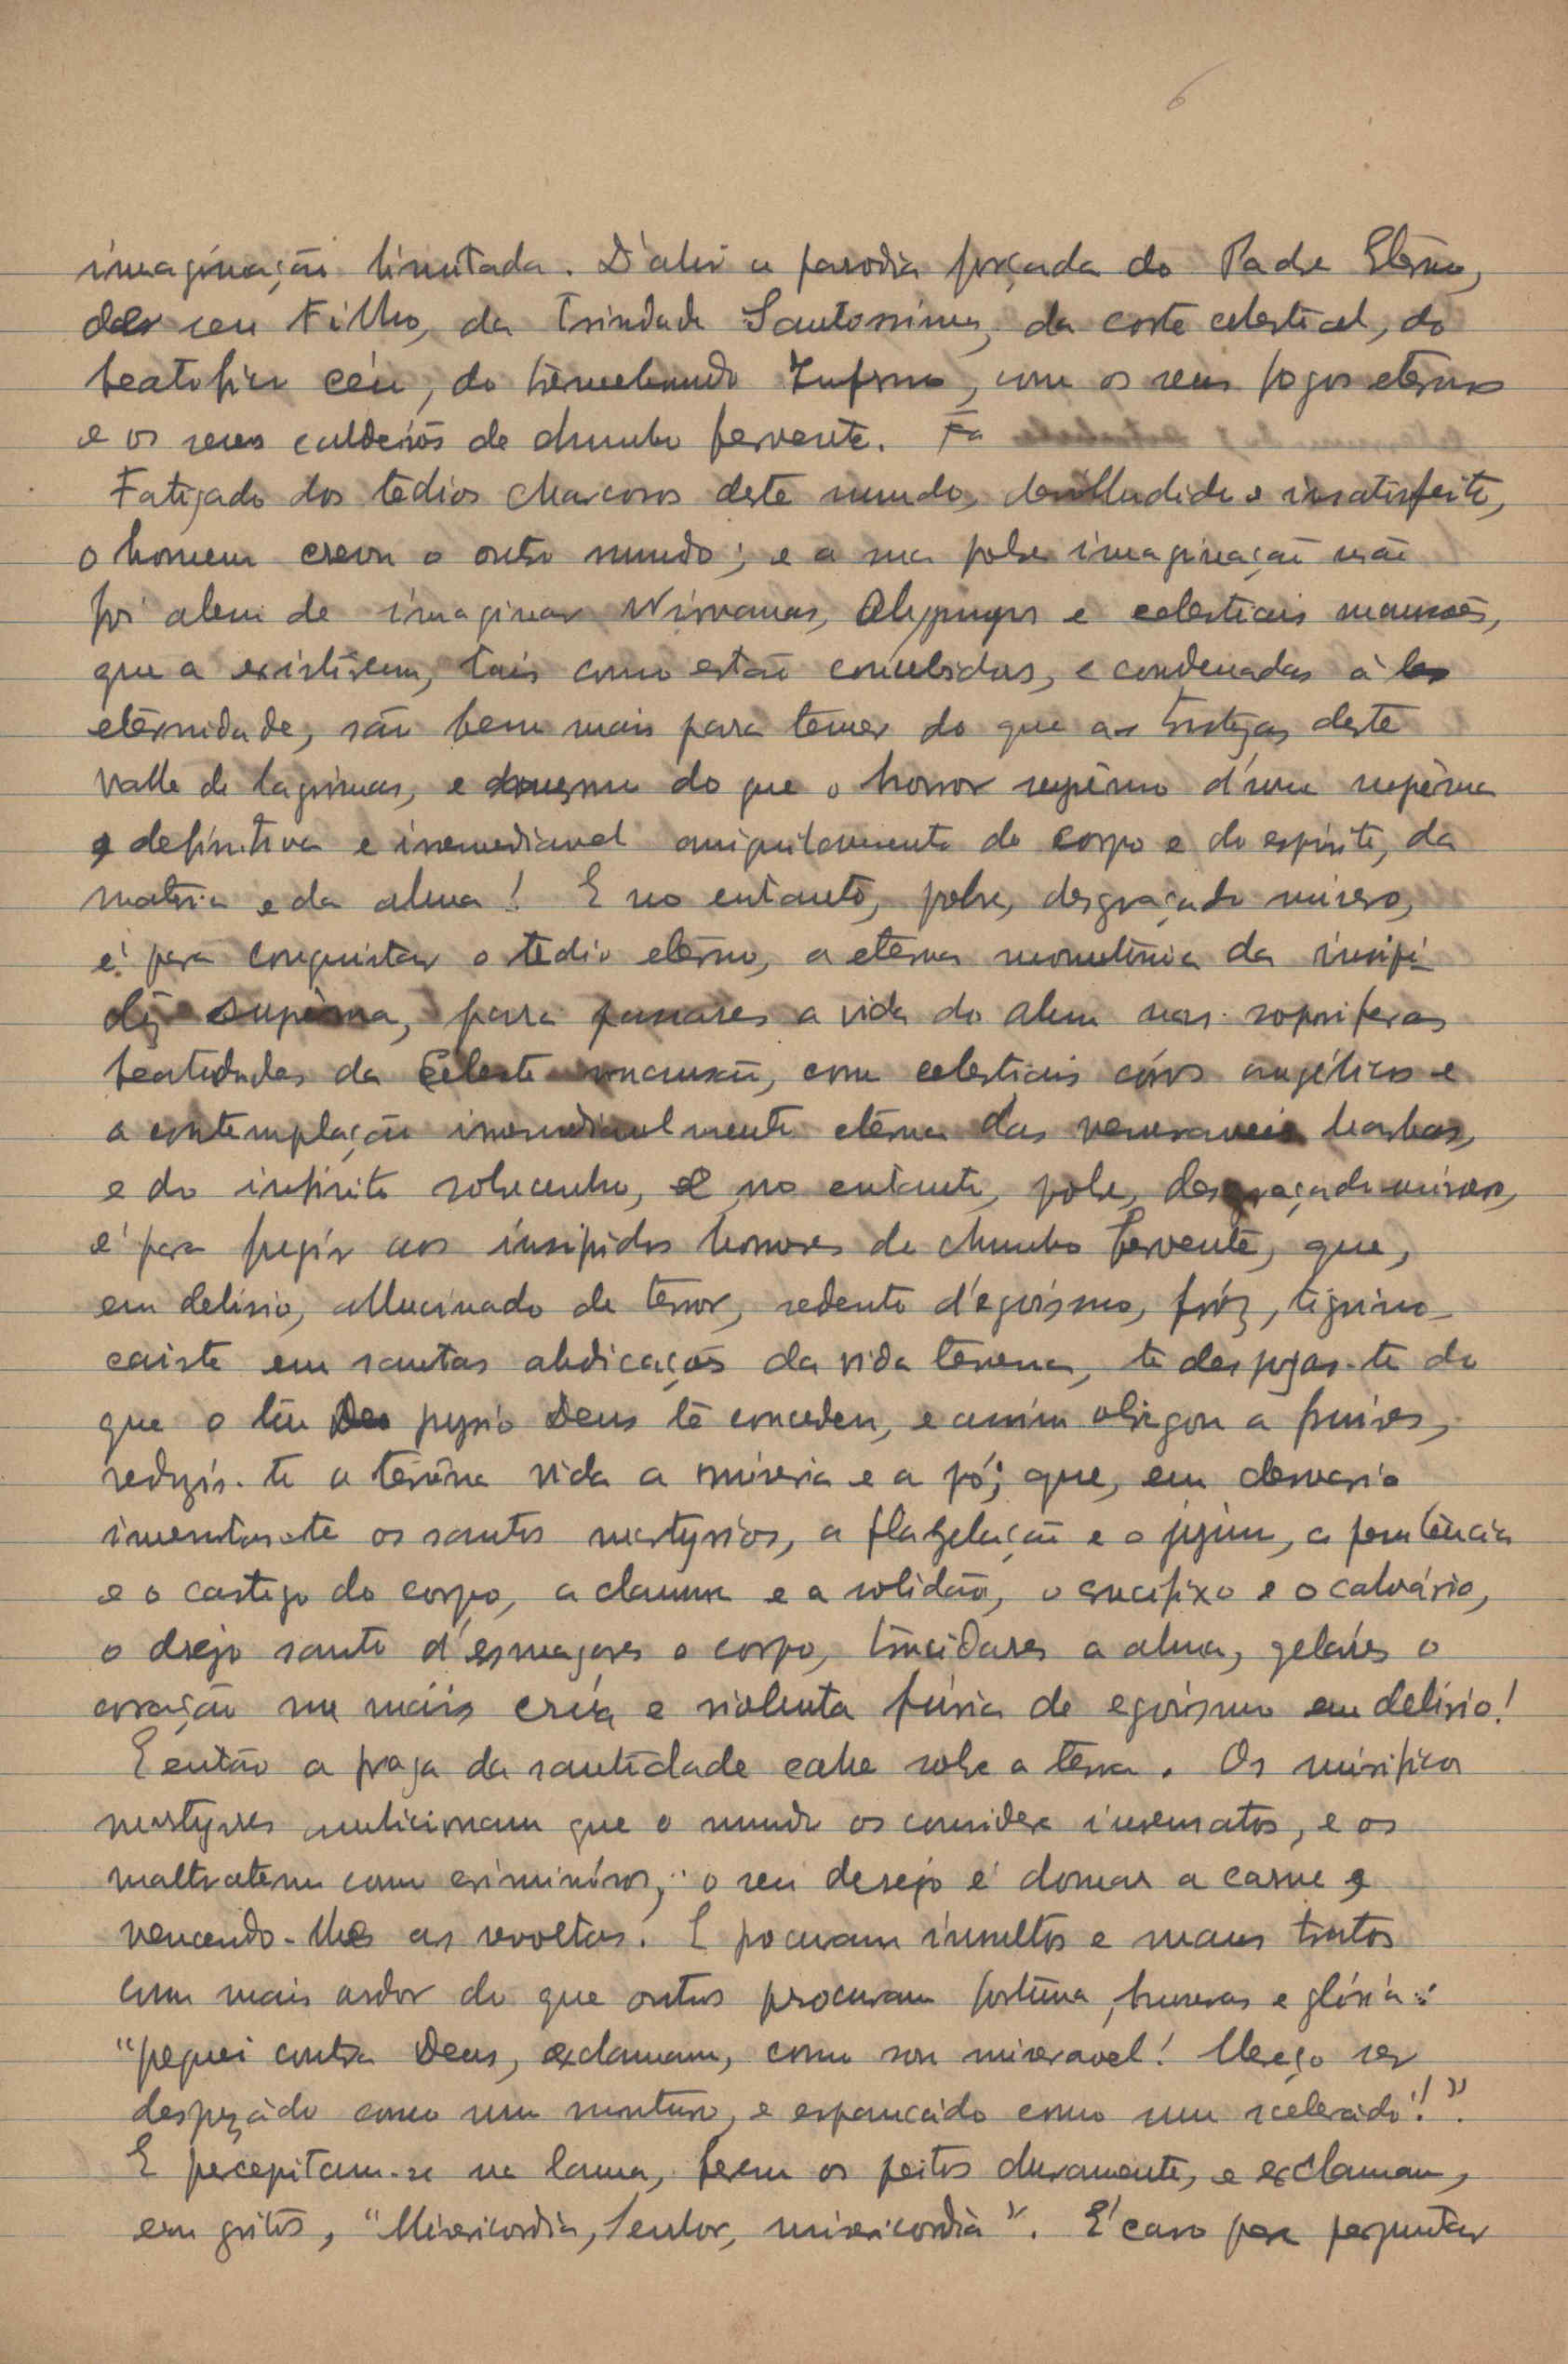 6
imaginação limitada. D'ahi a parodia forçada do Padre Eterno,
do seu Filho, da Trindade Santissima, da corte celestial, do
beatifico céu, do tremebundo Inferno, com os seus fogos eternos
e os seus caldeirões de chumbo fervente. Fa
Fatigado dos tedios charcosos deste mundo, desilludido e insatisfeito,
o homem creou o outro mundo; e a sua pobre imaginação não
foi alem de imaginar Nirvanas, Olympos e celestiais mansões,
que a existirem, tais como estão concebidas, e condenadas à
eternidade, são bem mais para temer do que as tristezas deste
valle de lagrimas, e do que o horror supremo d'uma suprema
e definitiva e irremediavel aniquilamento do corpo e do espirito, da
materia e da alma! E no entanto, pobre, desgraçado misero,
é para conquistar o tedio eterno, a eterna monotonia da insipi-
dêz suprema, para passares a vida do alem nas soporiferas
beatitudes da Celeste mansão, com celestiais córos angélicos e
a contemplação irremediavelmente eterna das veneraveis barbas,
e do infinito sobrecenho, e no entanto, pobre, desgraçado misero,
é para fugir aos insipidos horrores de chumbo fervente, que,
em delirio, allucinado de terror, sedento d'egoismo, feróz, tigrino
caiste em santas abdicações da vida terrena, te despojas-te do
que o teu proprio Deus te concedeu, e assim obrigou a fruires,
reduzis-te a terrêna vida a miseria e a pó; que, em desvario
inventas-te os santos martyrios, a flagelação e o jejum, a penitência
e o castigo do corpo, a clausura e a solidão, o crucifixo e o calvário,
o desejo santo d'esmagares o corpo, trucidares a alma, gelares o
coração na máis crúa e violenta fúria de egoismo em delirio!
E então a praga da santidade cahe sobre a terra. Os mirificos
martyres ambicionam que o mundo os considere insensatos, e os
maltratem como criminósos; o seu desejo é domar a carne e
vencendo-lhes as revoltas. E procuram insultos e maus tratos
com mais ardor do que outros procuram fortuna, honras e glória:
"pequei contra Deus, exclamam, como sou miseravel! Mereço ser
desprezádo como um monturo, e espancádo como um scelerado!".
E precepitam-se na lama, ferem os peitos duramente, e exclamam,
em gritos, "Misericordia, Senhor, misericordia". É caso para perguntar